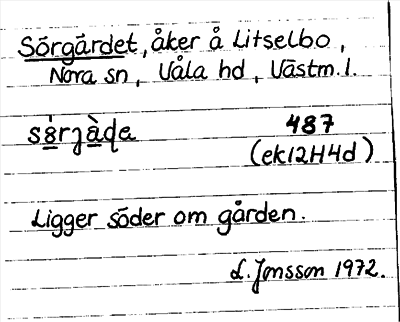 Sörgärdet, åker å Litselbo,
Nora sn, Våla hd, Västm. l.
487
(ek12H4d)
Ligger söder om gården.
L. Jonsson 1972.